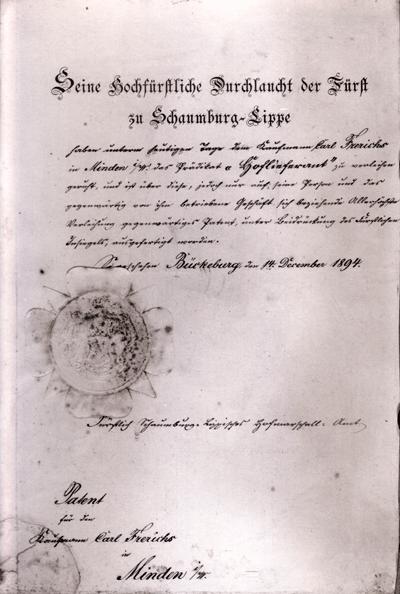 Seine Hochfürstliche Durchlaucht der Fürst
zu Schaumburg-Lippe
haben unterm heutigen Tage dem Kaufmann Carl Frerichs
in Minden i/W. das Prädikat „Hoflieferant" zu verleihen
geruht, und ist über diese, jedoch nur auf seine Person und das
gegenwärtig von ihm betriebene Geschäft sich beziehende Allerhöchste
Verleihung gegenwärtiges Patent, unter Beidrückung des Fürstlichen
Insiegels, ausgefertigt worden.
Geschehen Bückeburg, den 14. December 1894.
Fürstlich Schaumburg-Lippisches Hofmarschall-Amt
Patent
für den
Kaufmann Carl Frerichs
in
Minden i/W.